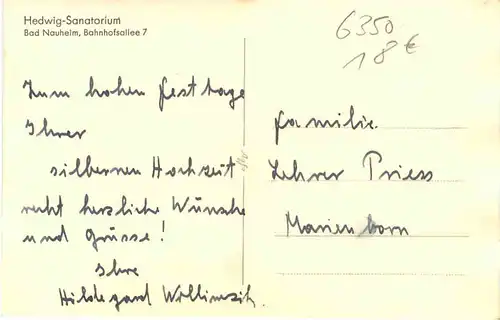 Hedwig-Sanatorium
Bad Nauheim, Bahnhofsallee 7
6350
18 €
Zum hohen Festtage
Ihrer
silbernen Hochzeit
recht herzliche Wünsche
und Grüsse!
Ihre
Hildegard
Familie
Lehrer Priess
Marienborn